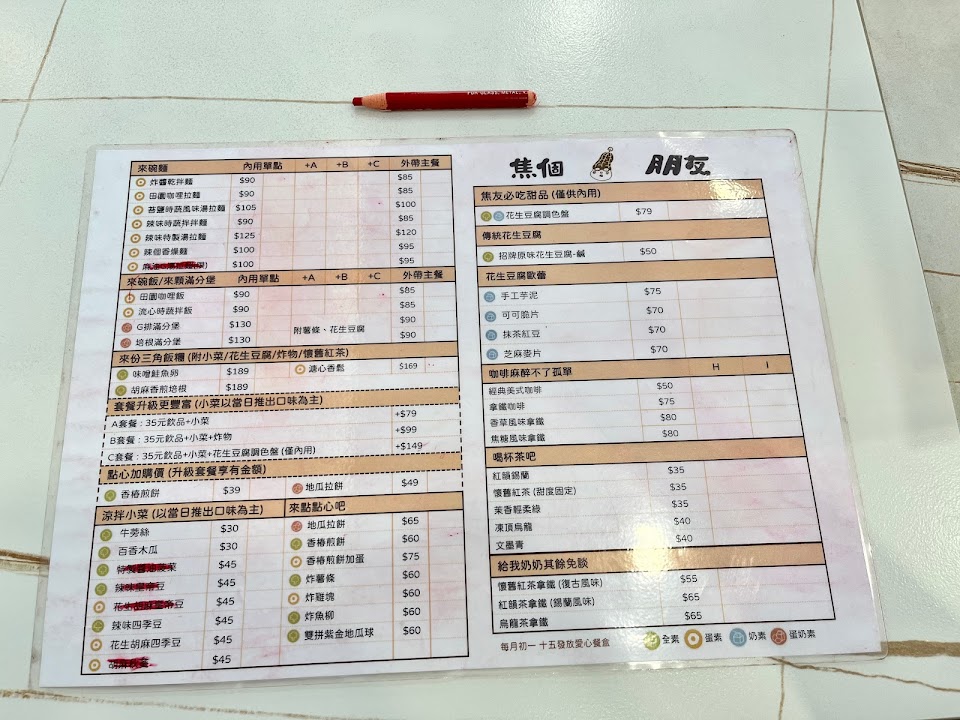 FOR GLASS, METAL,
來碗麵 內用單點 +A +B +C 外帶主餐
炸醬乾拌麵 $90 $85
田園咖哩拉麵 $90 $85
苔鹽時蔬風味湯拉麵 $105 $100
辣味時蔬拌拌麵 $90 $85
辣味特製湯拉麵 $125 $120
辣個香燥麵 $100 $95
$100 $95
來碗飯/來顆滿分堡 內用單點 +A +B +C 外帶主餐
田園咖哩飯 $90 $85
流心時蔬拌飯 $90 $85
G排滿分堡 $130 附薯條、花生豆腐 $90
培根滿分堡 $130 $90
來份三角飯糰 (附小菜/花生豆腐/炸物/懷舊紅茶)
味噌鮭魚卵 $189 溏心香鬆 $169
胡麻香煎培根 $189
套餐升級更豐富 (小菜以當日推出口味為主)
A套餐：35元飲品+小菜 +$79
B套餐：35元飲品+小菜+炸物 +$99
C套餐：35元飲品+小菜+花生豆腐調色盤 (僅內用) +$149
點心加購價 (升級套餐享有金額)
香椿煎餅 $39 地瓜拉餅 $49
涼拌小菜 (以當日推出口味為主)
牛蒡絲 $30
百香木瓜 $30
$45
$45
$45
辣味四季豆 $45
花生胡麻四季豆 $45
$45
來點點心吧
地瓜拉餅 $65
香椿煎餅 $60
香椿煎餅加蛋 $75
炸薯條 $60
炸雞塊 $60
炸魚柳 $60
雙拼紫金地瓜球 $60
焦個 朋友
焦友必吃甜品 (僅供內用)
花生豆腐調色盤 $79
傳統花生豆腐
招牌原味花生豆腐-鹹 $50
花生豆腐歐蕾
手工芋泥 $75
可可脆片 $70
抹茶紅豆 $70
芝麻麥片 $70
咖啡麻醉不了孤單 H I
經典美式咖啡 $50
拿鐵咖啡 $75
香草風味拿鐵 $80
焦糖風味拿鐵 $80
喝杯茶吧
紅韻錫蘭 $35
懷舊紅茶 (甜度固定) $35
茉香輕柔綠 $35
凍頂烏龍 $40
文墨青 $40
給我奶奶其餘免談
懷舊紅茶拿鐵 (復古風味) $55
紅韻茶拿鐵 (錫蘭風味) $65
烏龍茶拿鐵 $65
每月初一 十五發放愛心餐盒 全素 蛋素 奶素 蛋奶素